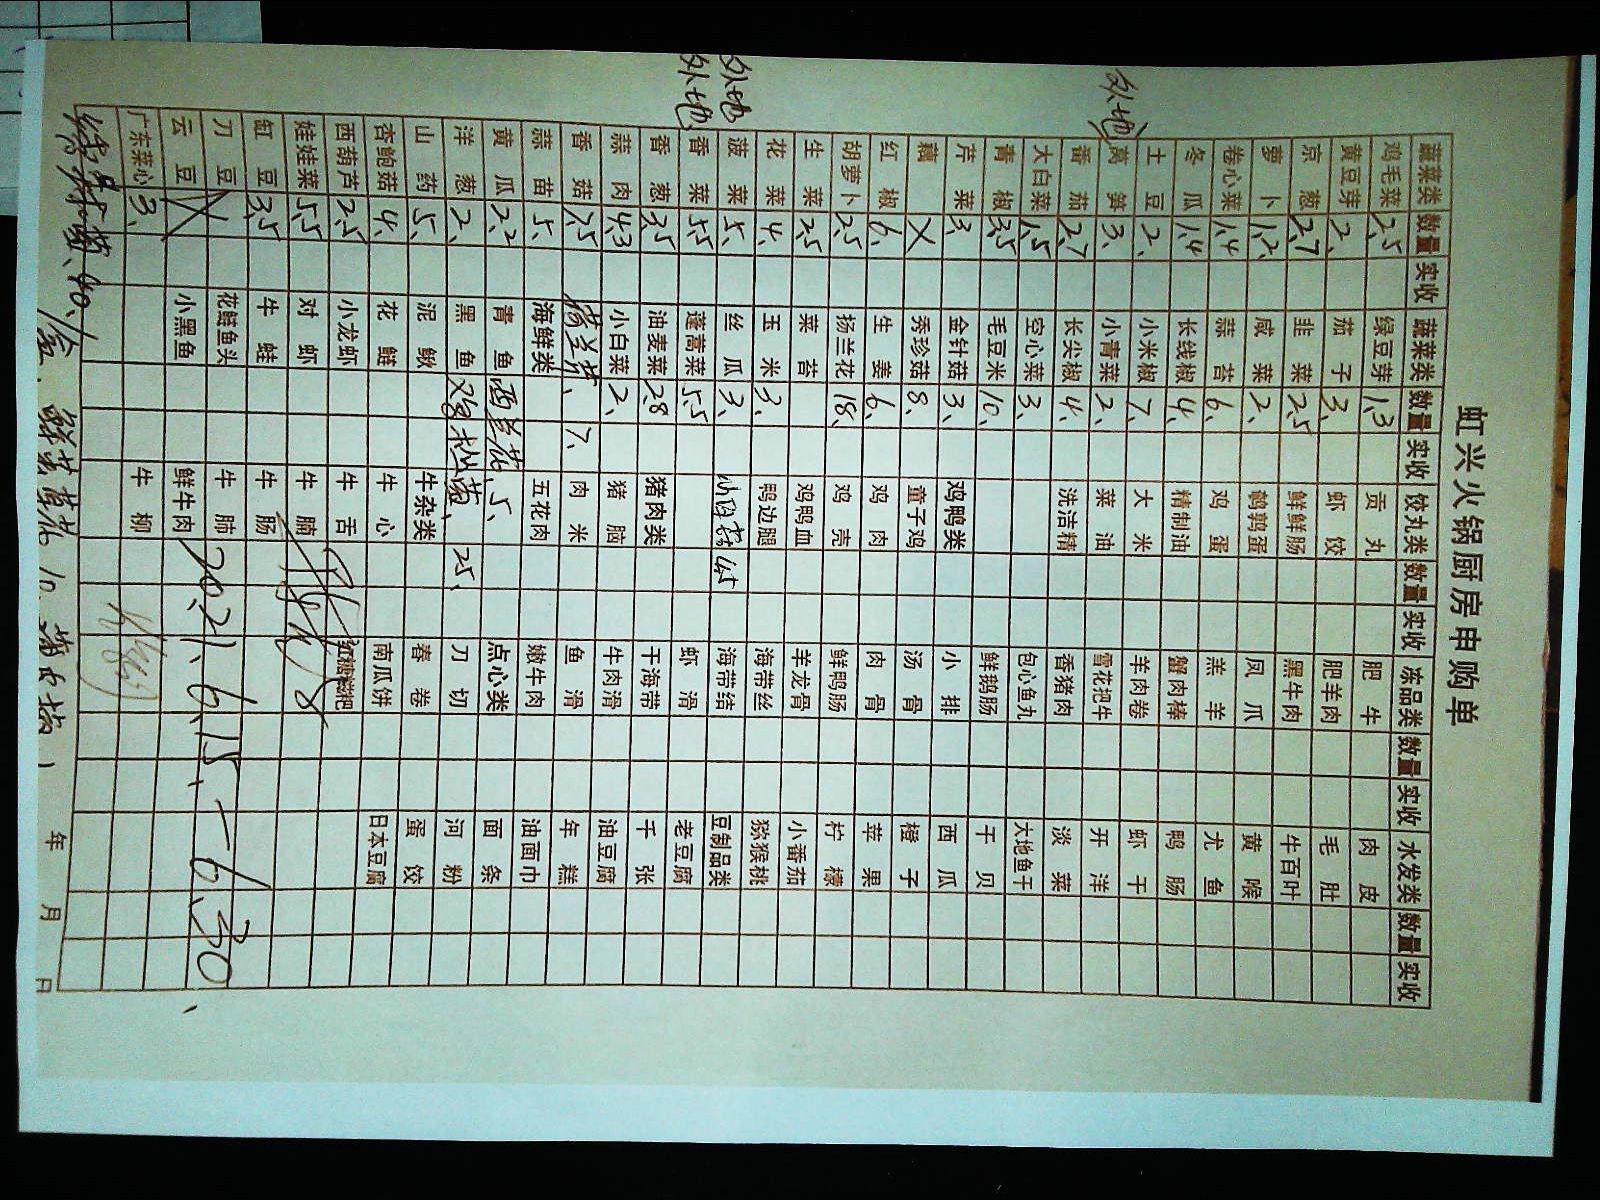 虹兴火锅厨房申购单
蔬菜类 数量 实收 蔬菜类 数量 实收 饺丸类 数量 实收 冻品类 数量 实收 水发类 数量 实收
鸡毛菜 2.5 绿豆芽 1.3 贡丸 肥牛 肉皮
黄豆芽 2、 茄子 3、 虾饺 肥羊肉 毛肚
京葱 2.7 韭菜 2.5 鲜鲜肠 黑牛肉 牛百叶
萝卜 1.2 咸菜 2、 鹌鹑蛋 凤爪 黄喉
卷心菜 1.4 蒜苔 6、 鸡蛋 羔羊 尤鱼
冬瓜 1.4 长线椒 4、 精制油 蟹肉棒 鸭肠
土豆 2、 小米椒 7、 大米 羊肉卷 虾干
外地 莴笋 3、 小青菜 2、 菜油 雪花把牛 开洋
番茄 2.7 长尖椒 4、 洗洁精 香猪肉 淡菜
大白菜 1.5 空心菜 3、 包心鱼丸 大地鱼干
青椒 3.5 毛豆米 10、 鲜鹅肠 干贝
芹菜 3、 金针菇 3、 鸡鸭类 小排 西瓜
藕 X 秀珍菇 8、 童子鸡 汤骨 橙子
红椒 6、 生姜 6、 鸡肉 肉骨 苹果
胡萝卜 2.5 扬兰花 18、 鸡壳 鲜鸭肠 柠檬
生菜 2.5 菜苔 鸡鸭血 羊龙骨 小番茄
花菜 4、 玉米 3、 鸭边腿 海带丝 猕猴桃
外地 菠菜 5、 丝瓜 3、 海带结 豆制品类
外地 香菜 5.5 蓬蒿菜 5.5 虾滑 老豆腐
香葱 3.5 油麦菜 2.8 猪肉类 干海带 千张
蒜肉 4.3 小白菜 2、 猪脑 牛肉滑 油豆腐
香菇 7.5 7、 肉米 鱼滑 年糕
蒜苗 5、 海鲜类 五花肉 嫩牛肉 油面巾
黄瓜 2.2 青鱼 西兰花、5、 点心类 面条
洋葱 2、 黑鱼 鸡枞菌、25、 刀切 河粉
山药 5、 泥鳅 牛杂类 春卷 蛋饺
杏鲍菇 4、 花鲢 牛心 南瓜饼 日本豆腐
西葫芦 2.5 小龙虾 牛舌 红糖糍粑
娃娃菜 5.5 对虾 牛腩
缸豆 3.5 牛蛙 牛肠
刀豆 X 花鲢鱼头 牛肺
云豆 小黑鱼 鲜牛肉 2021、6、15、一6、30、
广东菜心 3、 牛柳
40、
年 月 日